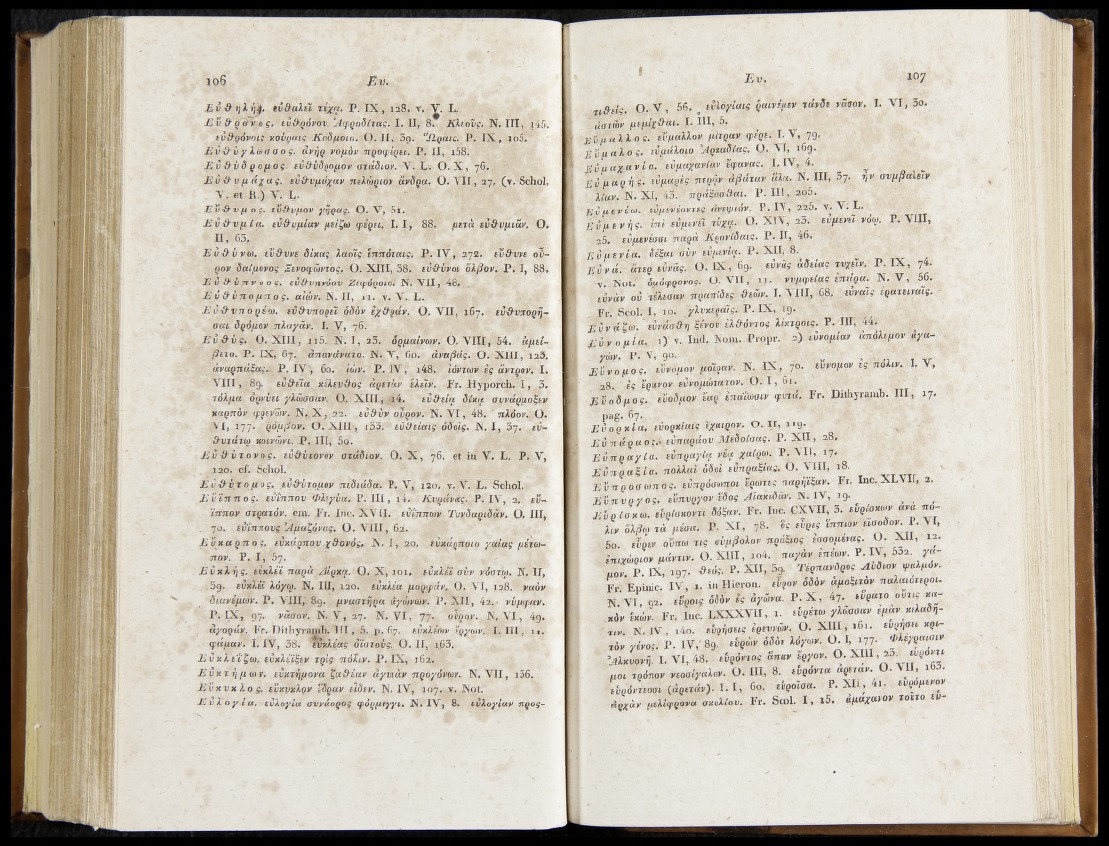 106 Ev.
Εὐθηλής. εὐθαλεῖ τύχᾳ. P. IX, 128. v. V. L.
Εὔθρονος. εὐθρόνου Ἀφροδίτας. I. II, 8. Κλεοῦς. N. III, 145.
εὐθρόνοις κούραις Κάδμοιο. O. II, 39. Ὥραις. P. IX, 105.
Εὐθύγλωσσος. ἀνὴρ νομὸν προφέρει. P. II, 158.
Εὐθύδρομος. εὐθύδρομον στάδιον. V. L. O. X, 76.
Εὐθυμάχας. εὐθυμάχαν πελώριον ἄνδρα. O. VII, 27. (v. Schol.
V. et R.) V. L.
Εὔθυμος. εὔθυμον γῆρας. O. V, 51.
Εὐθυμία. εὐθυμίαν μείζω φέρει. I. I, 88. μετὰ εὐθυμιᾶν. O.
II, 63.
Εὐθύνω. εὔθυνε δίκας λαοῖς ἱππόταις. P. IV, 272. εὔθυνε οὖ-
ρον δαίμονος Ξενοφῶντος. O. XIII, 38. εὐθύνοι ὄλβον. P. I, 88.
Εὐθύπνοος. εὐθυπνόου Ζεφύροιο. N. VII, 48.
Εὐθύπομπος. αἰών. N. II, 11. v. V. L.
Εὐθυπορέω. εὐθυπορεῖ ὁδὸν ἐχθράν. O. VII, 167. εὐθυπορῆ-
σαι δρόμον πλαγᾶν. I. V, 76.
Εὐθύς. O. XIII, 115. N. I, 23. ὁρμαίνων. O. VIII, 54. ἀμεί-
βετο. P. IX, 67. ἀπανάνατο. N. V, 60. ἀναβάς. O. XIII, 123.
ἀναρπάξας. P. IV, 60. ἰών. P. IV, 148. ἰόντων ἐς ἄντρον. I.
VIII, 89. εὐθεῖα κέλευθος ἀρετὰν ἑλεῖν. Fr. Hyporch. I, 3.
τόλμα ὀρνύει γλῶσσαν. O. XIII, 14. εὐθείᾳ δίκᾳ συνάρμοξεν
καρπὸν φρενῶν. N. X, 22. εὐθὺν οὖρον. N. VI, 48. πλόον. O.
VI, 177. ῥόμβον. O. XIII, 133. εὐθείαις ὁδοῖς. N. I, 37. εὐ-
θυτάτῳ κοινῶνι. P. III, 50.
Εὐθύτονος. εὐθύτονον στάδιον. O. X, 76. et in V. L. P. V,
120. cf. Schol.
Εὐθύτομος. εὐθύτομον πεδιάδα. P. V, 120. v. V. L. Schol.
Εὔϊππος. εὐίππου Φλεγύα. P. III, 14. Κυράνας. P. IV, 2. εὔ-
ϊππον στρατόν. em. Fr. Inc. XVII. εὐίππων Τυνδαριδᾶν. O. III,
70. εὐίππους Ἀμαζόνας. O. VIII, 62.
Εὔκαρπος. εὐκάρπου χθονός. N. I, 20. εὐκάρποιο γαίας μέτω-
πον. P. I, 57.
Εὐκλής. εὐκλέϊ παρὰ Δίρκᾳ. O. X, 101. εὐκλέϊ σὺν νόστῳ. N. II,
39. εὐκλέϊ λόγῳ. N. III, 120. εὐκλέα μορφάν. O. VI, 128. ναὸν
διανέμων. P. VIII, 89. μναστῆρα ἀγώνων. P. XII, 42. νύμφαν.
P. IX, 97. νᾶσον. N. V, 27. N. VI, 77. οὖρον. N. VI, 49.
ἀγοράν. Fr. Dithyramb. III, 5. p. 67. εὐκλέων ἔργων. I. III, 11.
φάμαν. I. IV, 38. εὐκλέας ὀϊστούς. O. II, 163.
Εὐκλεΐζω. εὐκλεΐξεν τρὶς πόλιν. P. IX, 162.
Εὐκτήμων. εὐκτήμονα ζαθέαν ἀγυιὰν προγόνων. N. VII, 136.
Εὔκυκλος. εὔκυκλον ἕδραν εἶδεν. N. IV, 107. v. Not.
Εὐλογία. εὐλογία συνάορος φόρμιγγι. N. IV, 8. εὐλογίαν προς-
Ev. 107
τιθείς. O. V, 56. εὐλογίαις ῥαινέμεν τάνδε νᾶσον. I. VI, 30.
ἀστῶν μεμίχθαι. I. III, 5.
Εὔμαλλος. εὔμαλλον μίτραν φέρε. I. V, 79.
Εὔμαλος. εὐμάλοιο Ἀρκαδίας. O. VI, 169.
Εὐμαχανία. εὐμαχανίαν ἔφανας. I. IV, 4.
Εὐμαρής. εὐμαρὲς περῆν ἀβάταν ἅλα. N. III, 37. ἦν συμβαλεῖν
λίαν. N. XI, 43. πράξασθαι. P. III, 205.
Εὐμενέω. εὐμενέοντες ἀνεψιόν. P. IV, 225. v. V. L.
Εὐμενής. ἐπὶ εὐμενεῖ τύχᾳ. O. XIV, 23. εὐμενεῖ νόῳ. P. VIII,
25. εὐμενέσσι παρὰ Κρονίδαις. P. II, 46.
Εὐμενία. δέξαι σὺν εὐμενίᾳ. P. XII, 8.
Εὐνά. ἄτερ εὐνᾶς. O. IX, 69. εὐνᾶς ἀδείας τυχεῖν. P. IX, 74.
v. Not. ὁμόφρονος. O. VII, 11. νυμφείας ἐπείρα. N. V, 56.
εὐνὰν οὐ τέλεσαν πραπίδες θεῶν. I. VIII, 68. εὐναῖς ἐρατειναῖς.
Fr. Scol. I, 10. γλυκεραῖς. P. IX, 19.
Εὐνάζω. εὐνάσθη ξένου ἐλθόντος λέκτροις. P. III, 44.
Εὐνομία. 1) v. Ind. Nom. Propr. 2) εὐνομίαν ἀπόλεμον ἀγα-
γών. P. V, 90.
Εὔνομος. εὔνομον μοῖραν. N. IX, 70. εὔνομον ἐς πόλιν. I. V,
28. ἐς ἔρανον εὐνομώτατον. O. I, 61.
Εὔοδμος. εὔοδμον ἔαρ ἐπαΐωσιν φυτά. Fr. Dithyramb. III, 17.
pag. 67.
Εὐορκία. εὐορκίαις ἔχαιρον. O. II, 119.
Εὐπάραος. εὐπαράου Μεδοίσας. P. XII, 28.
Εὐπραγία. εὐπραγίᾳ νέᾳ χαίρω. P. VII, 17.
Εὐπραξία. πολλαὶ ὁδοὶ εὐπραξίας. O. VIII, 18.
Εὐπρόσωπος. εὐπρόσωποι ἔρωτες παρήϊξαν. Fr. Inc. XLVII, 2.
Εὔπυργος. εὔπυργον ἕδος Αἰακιδᾶν. N. IV, 19.
Εὑρίσκω. εὑρίσκοντι δόξαν. Fr. Inc. CXVII, 3. εὑρίσκων ἀνὰ πό-
λιν ὄλβῳ τὰ μέσα. P. XI, 78. ἐς εὗρες ἵππιον εἴσοδον. P. VI,
50. εὗρεν οὔπω τις σύμβολον πράξιος ἐσσομένας. O. XII, 12.
ἐπιχώριον μάντιν. O. XIII, 104. παγὰν ἐπέων. P. IV, 532. γά-
μον. P. IX, 197. θεός. P. XII, 39. Τέρπανδρος Λύδιον ψαλμόν.
Fr. Epinic. IV, 1. in Hieron. εὗρον ὁδὸν ἀμαξιτὸν παλαιότεροι.
N. VI, 92. εὕροις ὁδὸν ἐς ἀγῶνα. P. X, 47. εὕρατο οὔτις κα-
κὸν ἑκών. Fr. Inc. LXXXVII, 1. εὑρέτω γλῶσσαν ἐμὰν κελαδῆ-
τιν. N. IV, 140. εὑρήσεις ἐρευνῶν. O. XIII, 161. εὑρήσει κρι-
τὸν γένος. P. IV, 89. εὑρὼν ὁδὸν λόγων. O. I, 177. Φλέγραισιν
Ἀλκυονῆ. I. VI, 48. εὑρόντος ἅπαν ἔργον. O. XIII, 23. εὑρόντι
μοι τρόπον νεοσίγαλον. O. III, 8. εὑρόντα ἀρετάν. O. VII, 163.
εὑρόντεσσι (ἀρετάν). I. I, 60. εὑροῖσα. P. XII, 41. εὑρόμενον
ἀρχὰν μελίφρονα σκολίου. Fr. Scol. I, 15. ἀμάχανον τοῦτο εὑ-